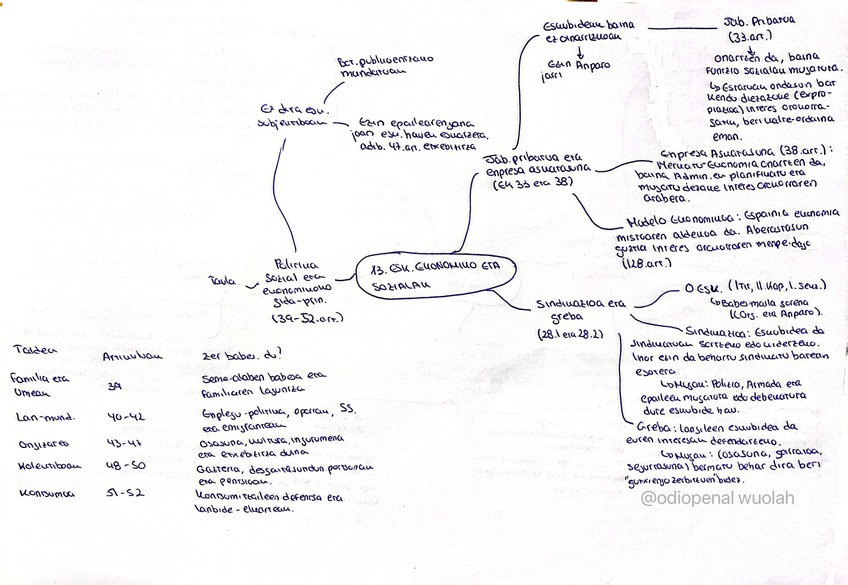 13. ESK. EKONOMIKO ETA
SOZIALAK
Jab. pribatua eta
enpresa askatasuna
(EK 33 eta 38)
Eskubideak baina
ez oinarrizkoak
Ezin Anparo
jarri
Jab. Pribatua
(33. art.)
onartzen da, baina
funtzio sozialak mugatuta.
↳ Estatuak ondasun bat
kendu diezazuke (expro-
piazioa) interes orokorra-
gatik, beti kalte-ordaina
eman.
Enpresa Askatasuna (38. art.):
Merkatu-Ekonomia onartzen da,
baina Admin.ek planifikatu eta
mugatu dezake interes orokorraren
arabera.
Modelo Ekonomikoa: Espainia ekonomia
mistoaren aldekoa da. Aberastasun
guztia interes orokorraren menpe dago
(128. art.)
Sindikazioa eta
greba
(28.1 eta 28.2)
O.ESK. (I. Tit, II. Kap, I. Sek.)
↳ Babes maila gorena
(LOrg. eta Anparo).
Sindikazioa: Eskubidea da
sindikatuak sortzeko edo kidetzeko.
Inor ezin da behartu sindikatu batean
egotera.
↳ Mugak: Polizia, Armada eta
epaileek mugatuta edo debekatuta
dute eskubide hau.
Greba: Langileen eskubidea da
euren interesak defendatzeko.
↳ Mugak: (osasuna, garraioa,
segurtasuna) bermatu behar dira beti
"gutxieneko zerbitzuen" bidez.
Politika
sozial eta
ekonomikoko
gida-prin.
(39-52. art.)
Ez dira esk.
subjektiboak
Bot. publikoentzako
mandatuak
Ezin epailearengana
joan esk. hauek eskatzera,
adib. 47. art. etxebizitza
Taula.
Taldea Artikuluak Zer babes. du?
Familia eta
Umeak 39 Seme-alaben babesa eta
familiaren laguntza
Lan-mund. 40-42 Enplegu-politika, oporrak, SS.
eta emigranteak
Ongizatea 43-47 Osasuna, kultura, ingurumena
eta etxebizitza duina
Kolektiboak 48-50 Gazteria, desgaitasundun pertsonak
eta pentsioak.
Kontsumoa 51-52 Kontsumitzaileen defentsa eta
lanbide-elkarteak.
@odiopenal wuolah